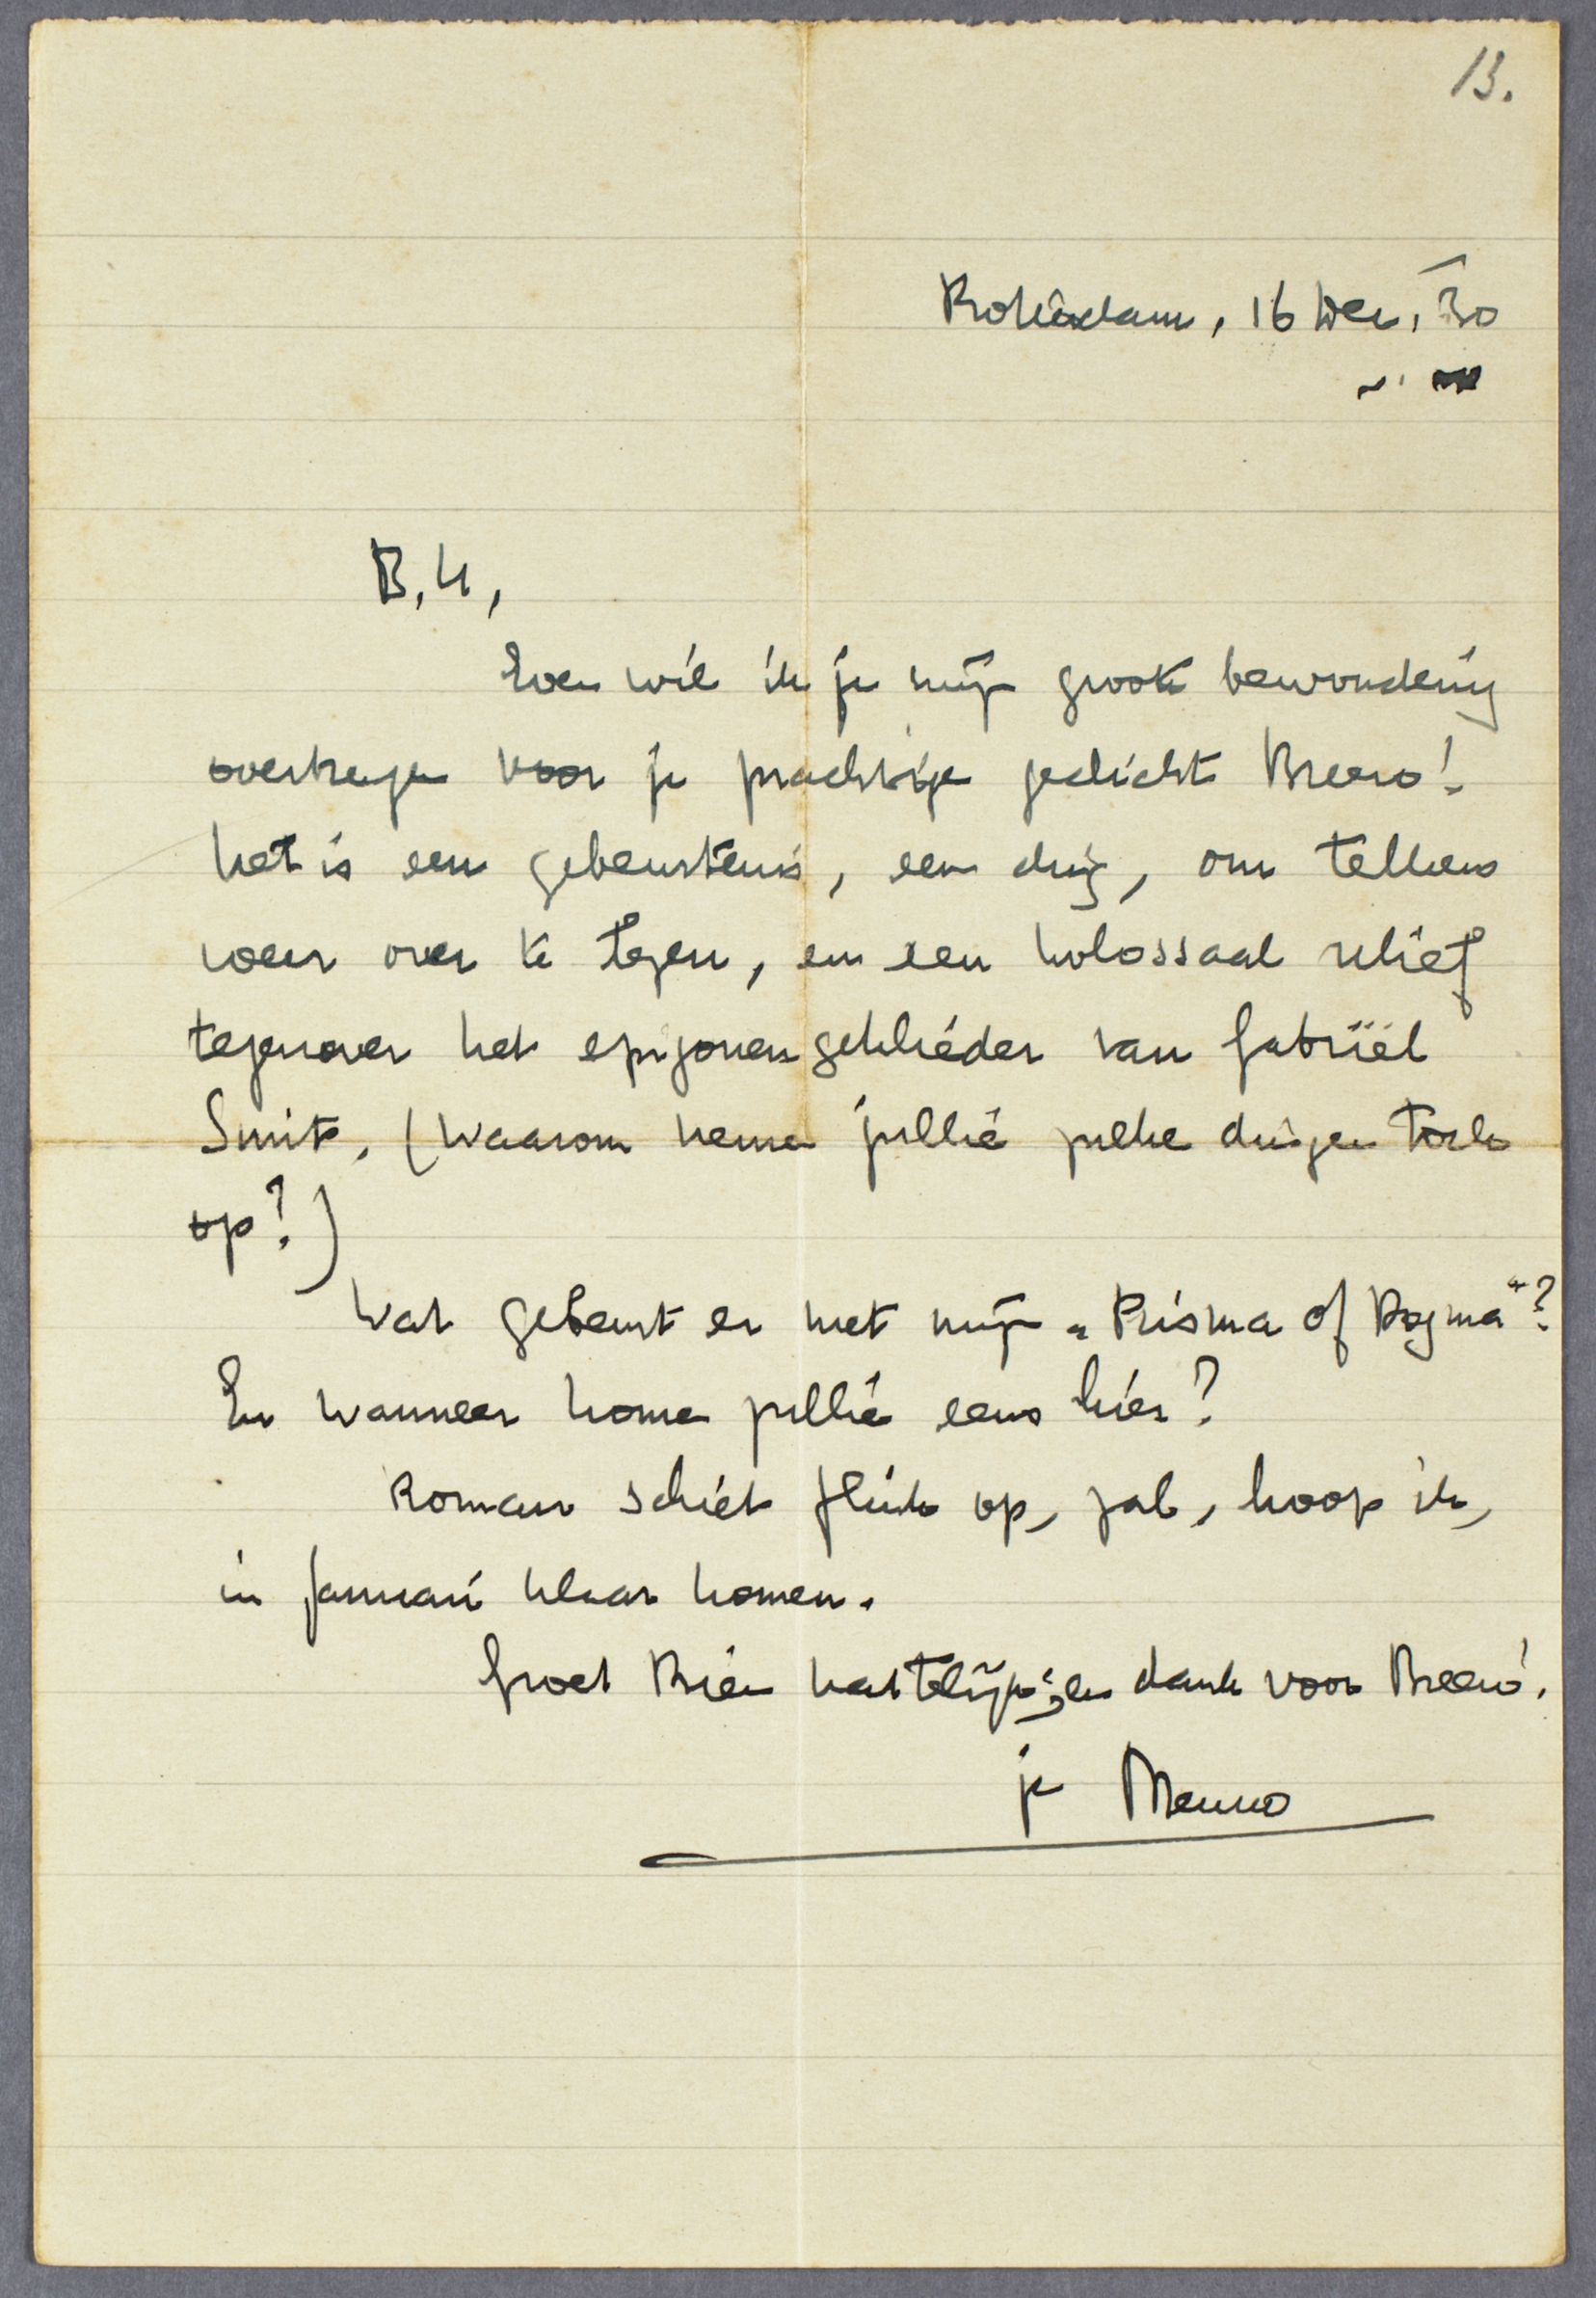 13.
Rotterdam, 16 Dec. '30
B.H.,
Even wil ik je mijn groote bewondering
overbrengen voor je prachtige gedicht Breero!
Het is een gebeurtenis, een ding, om telkens
weer over te lezen, en een kolossaal relief
tegenover het epigonengekleeder van Gabriël
Smit. (Waarom nemen jullie zulke dingen toch
op?)
Wat gebeurt er met mijn „Prisma of Dogma"?
En wanneer komen jullie eens hier?
Roman schiet flink op, zal, hoop ik,
in Januari klaar komen.
Groet Rien hartelijk; en dank voor Breero!
je Menno